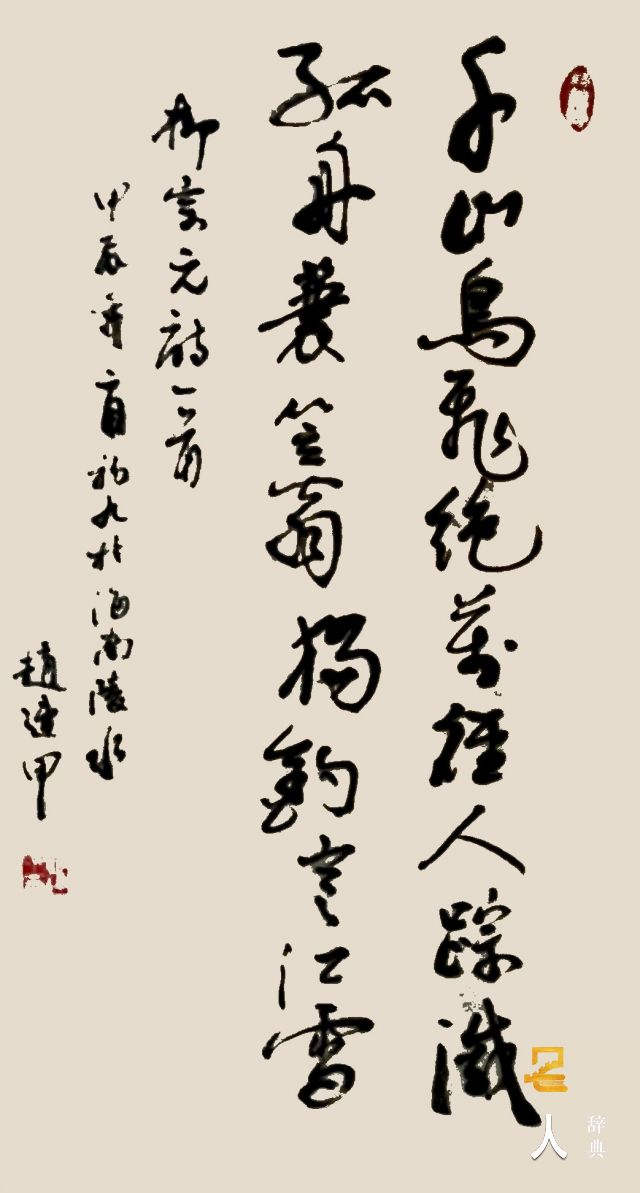 千山鳥飛絕萬徑人踪滅
孤舟蓑笠翁獨釣寒江雪
柳宗元詩一首
甲辰年初九於海南陵水
趙連甲
名人
辞典